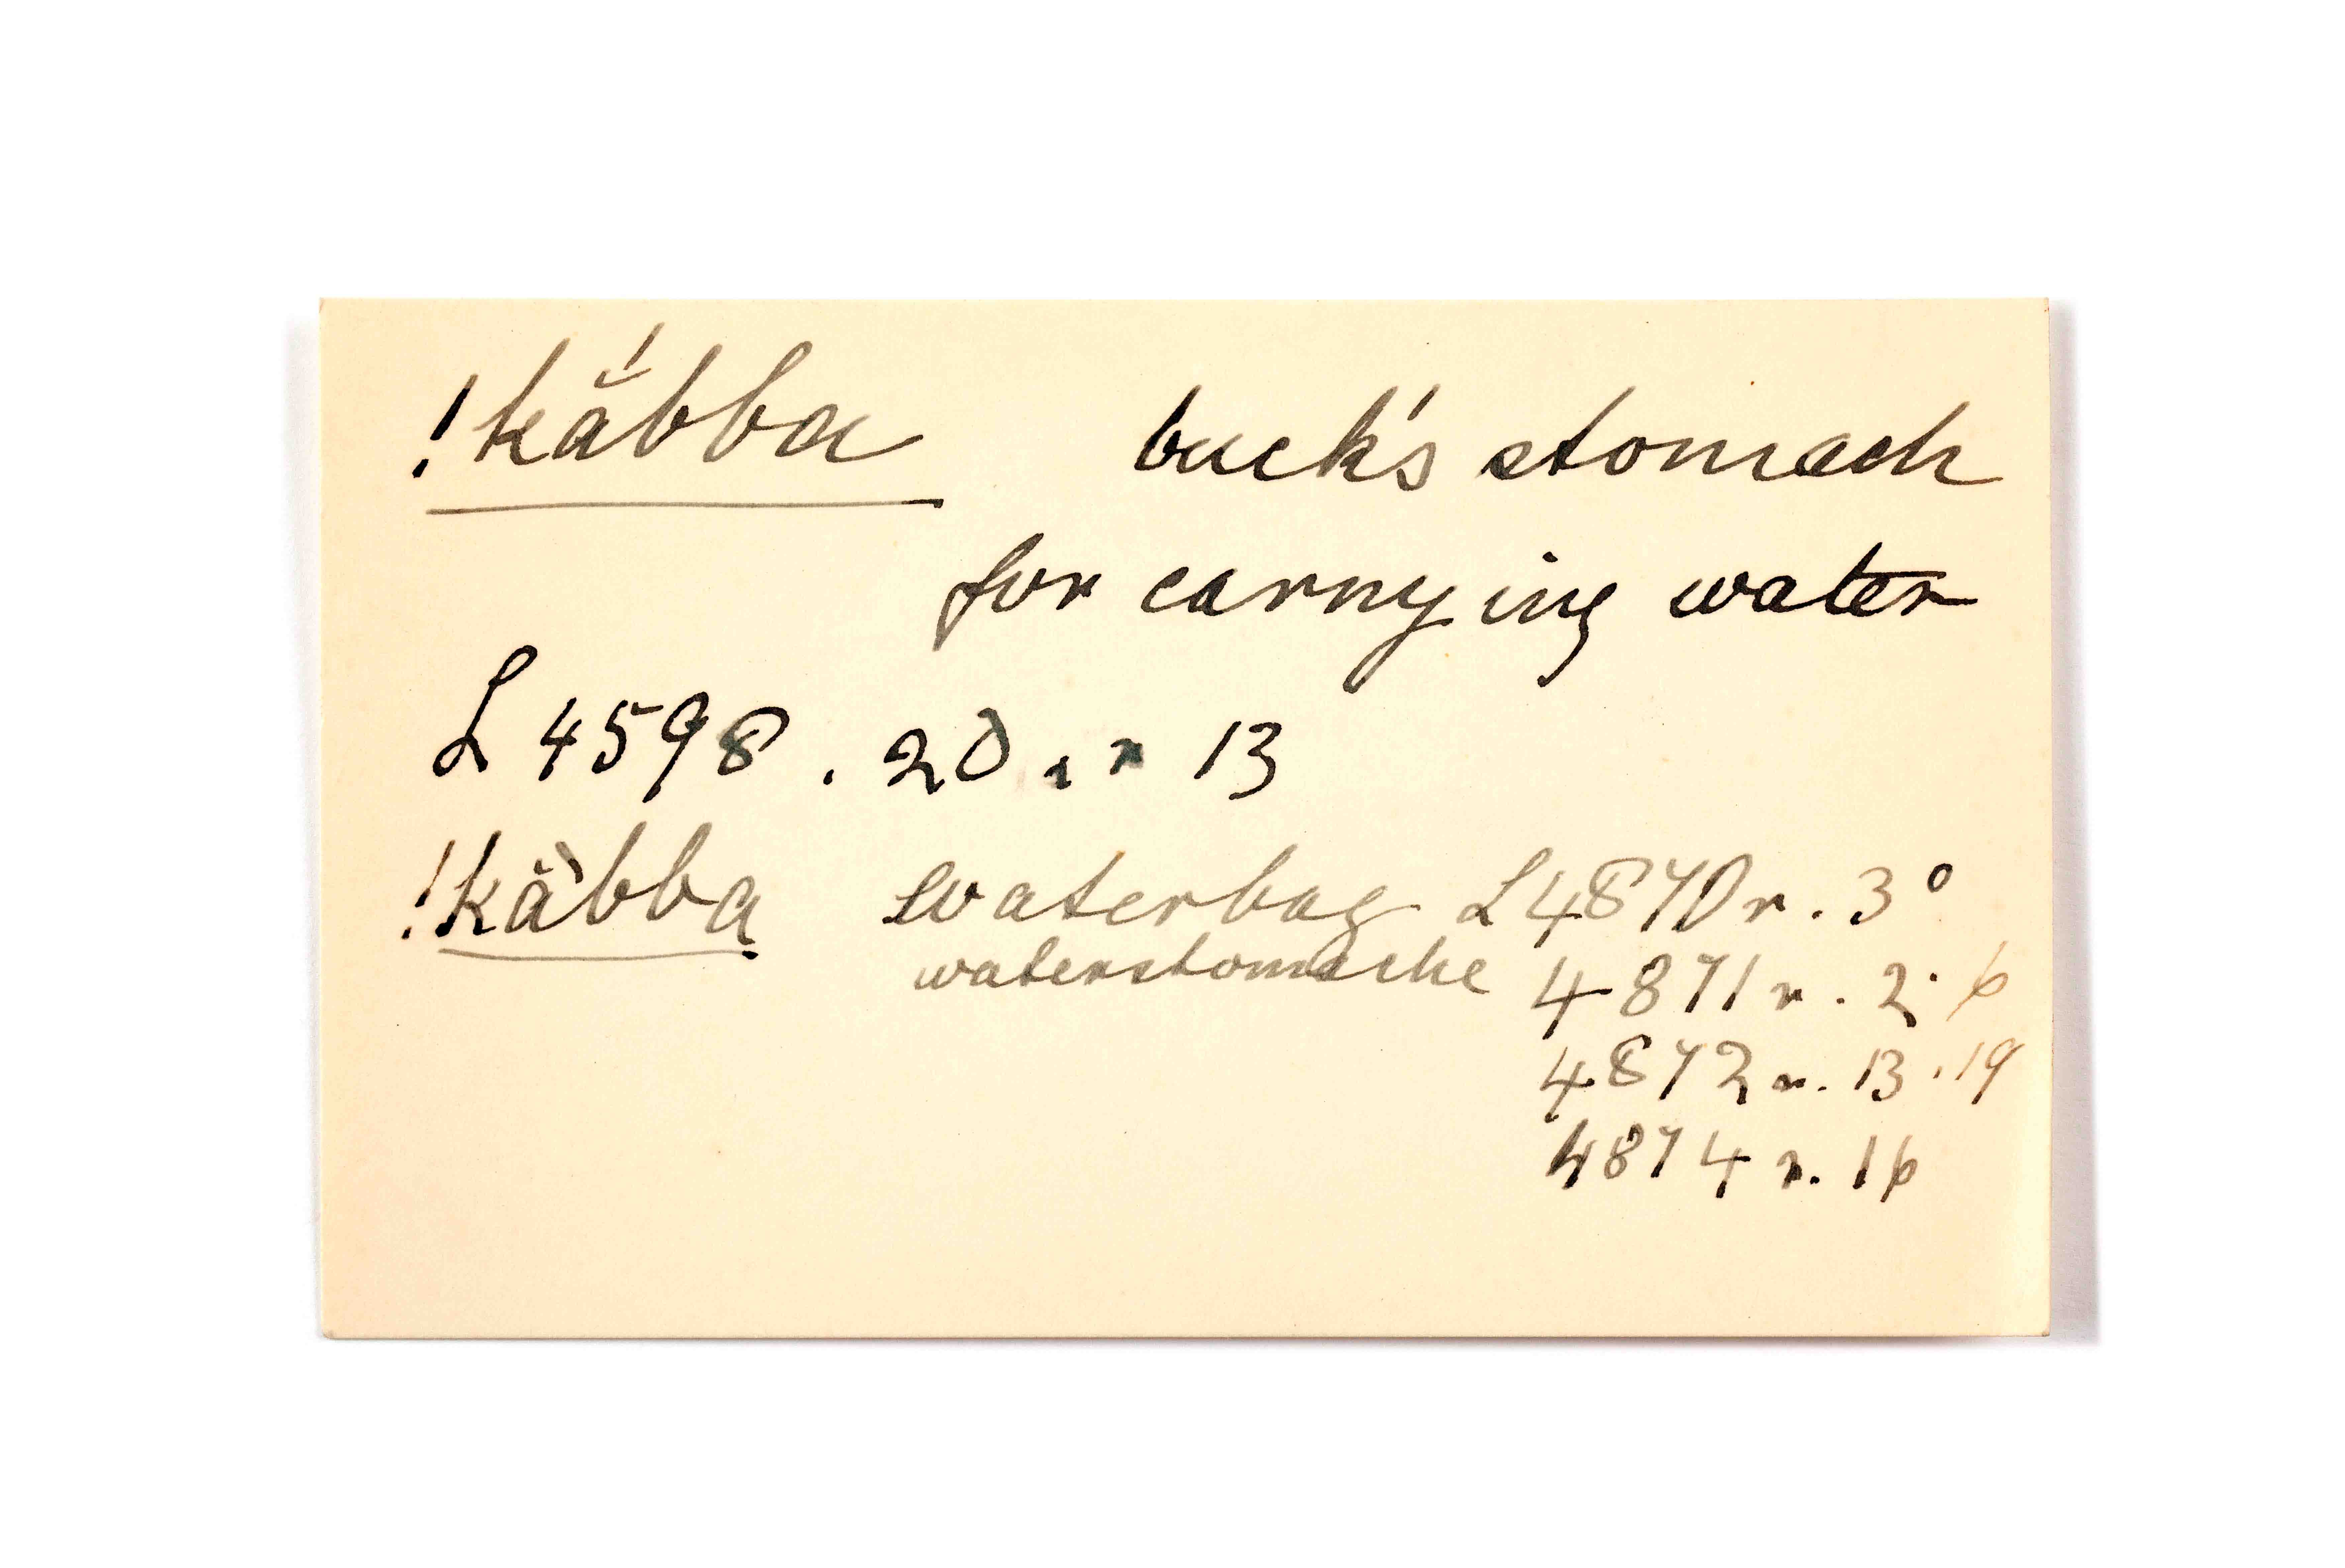 !kắbba buck's stomach
for carrying water
L 4598 . 20 . r 13
!kằbba waterbag L 4870 r . 3°
waterstomache 4871 r . 2 . 6
4872 r . 13 . 19
4874 r . 16